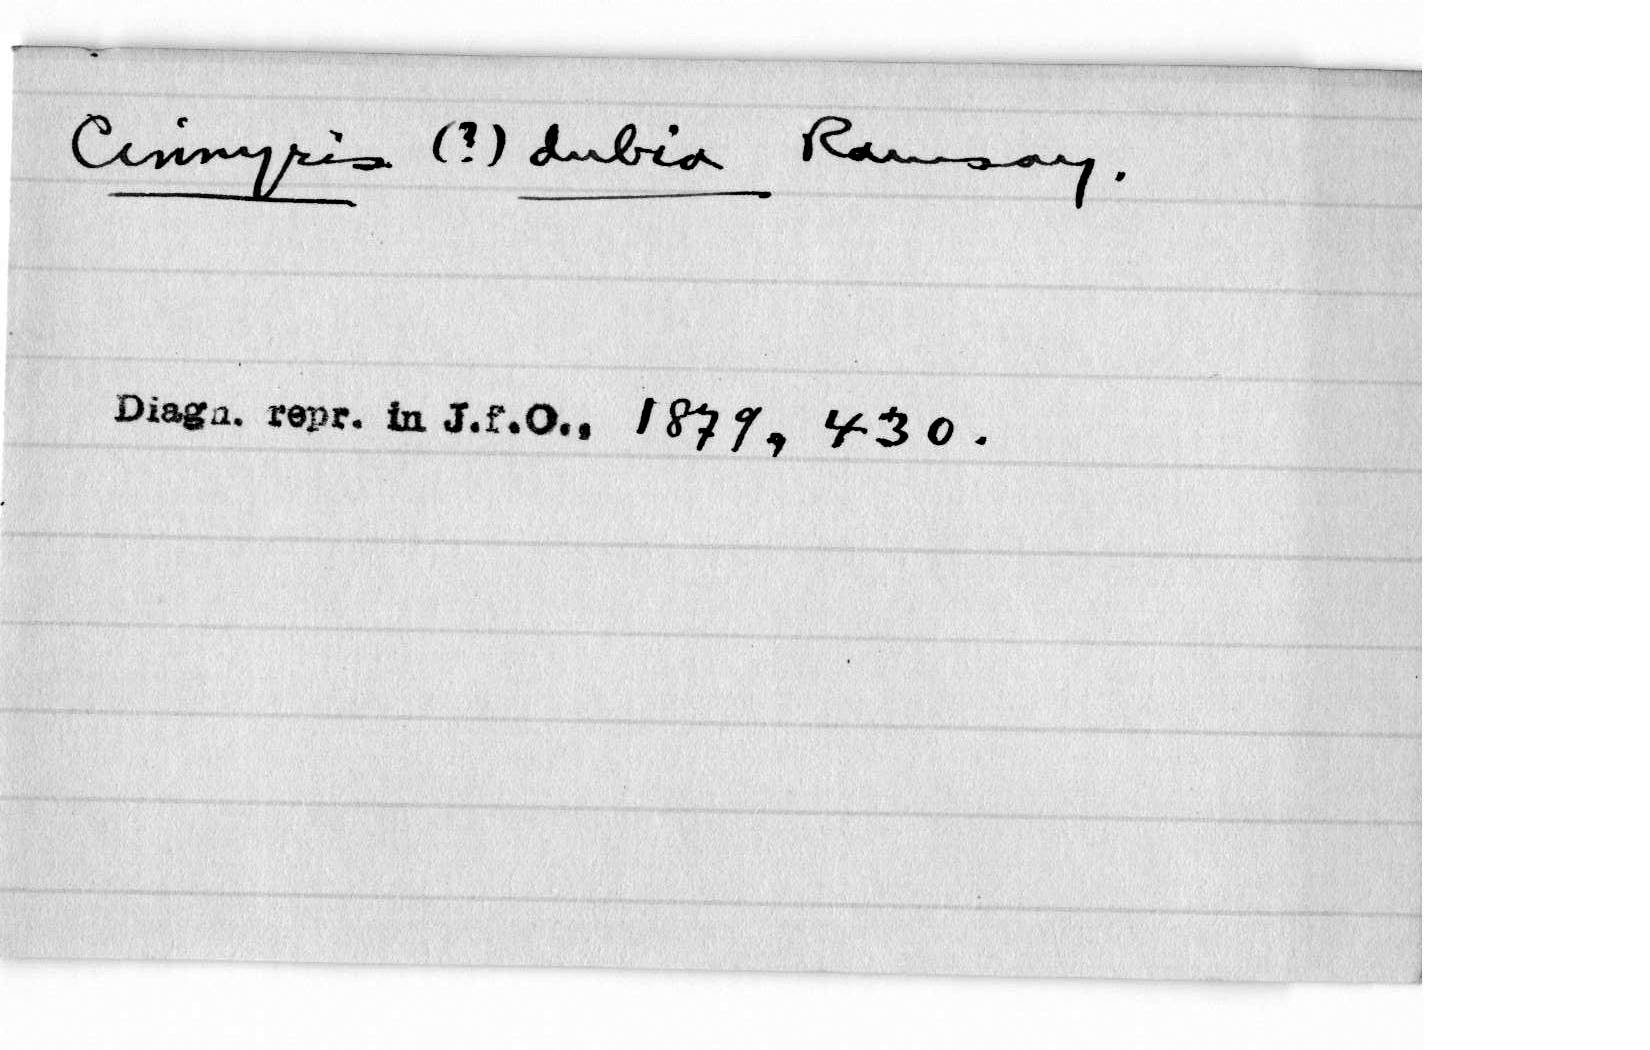 Cinnyris (?) dubia Ramsay.
Diagn. repr. in J.f.O., 1879, 430.